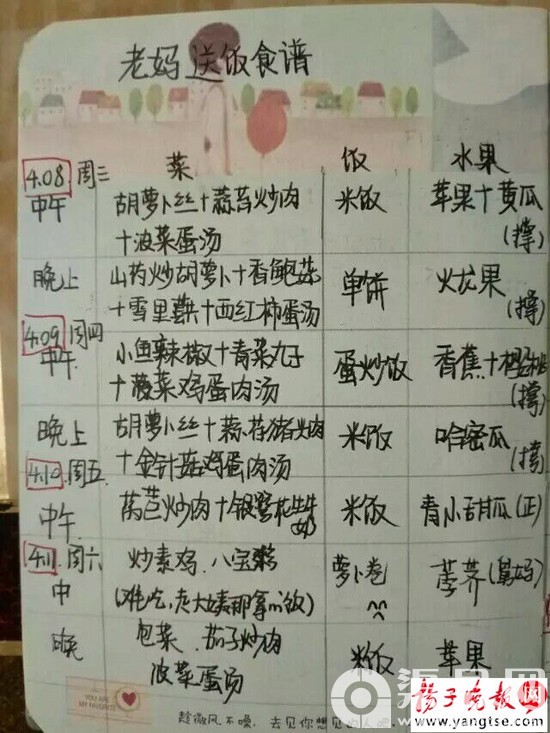 老妈送饭食谱
菜 饭 水果
4.08 周三
中午 胡萝卜丝+蒜苔炒肉 米饭 苹果+黄瓜
+菠菜蛋汤 (撑)
晚上 山药炒胡萝卜+香鲍菇 单饼 火龙果
+雪里蕻+西红柿蛋汤 (撑)
4.09 周四
中午 小鱼辣椒+青菜丸子 蛋炒饭 香蕉+
+菠菜鸡蛋肉汤 (撑)
晚上 胡萝卜丝+蒜苔猪肉 米饭 哈密瓜
+金针菇鸡蛋肉汤 (撑)
4.10 周五
中午 莴苣炒肉+银鹭花生牛奶 米饭 青小甜瓜(正)
4.11 周六
中 炒素鸡、八宝粥 萝卜卷 荸荠(舅妈)
(难吃,老大姨那拿的饭)
晚 包菜、茄子炒肉 米饭 苹果
菠菜蛋汤
趁微风不噪,去见你想见的人吧
扬子晚报网
www.yangtse.com